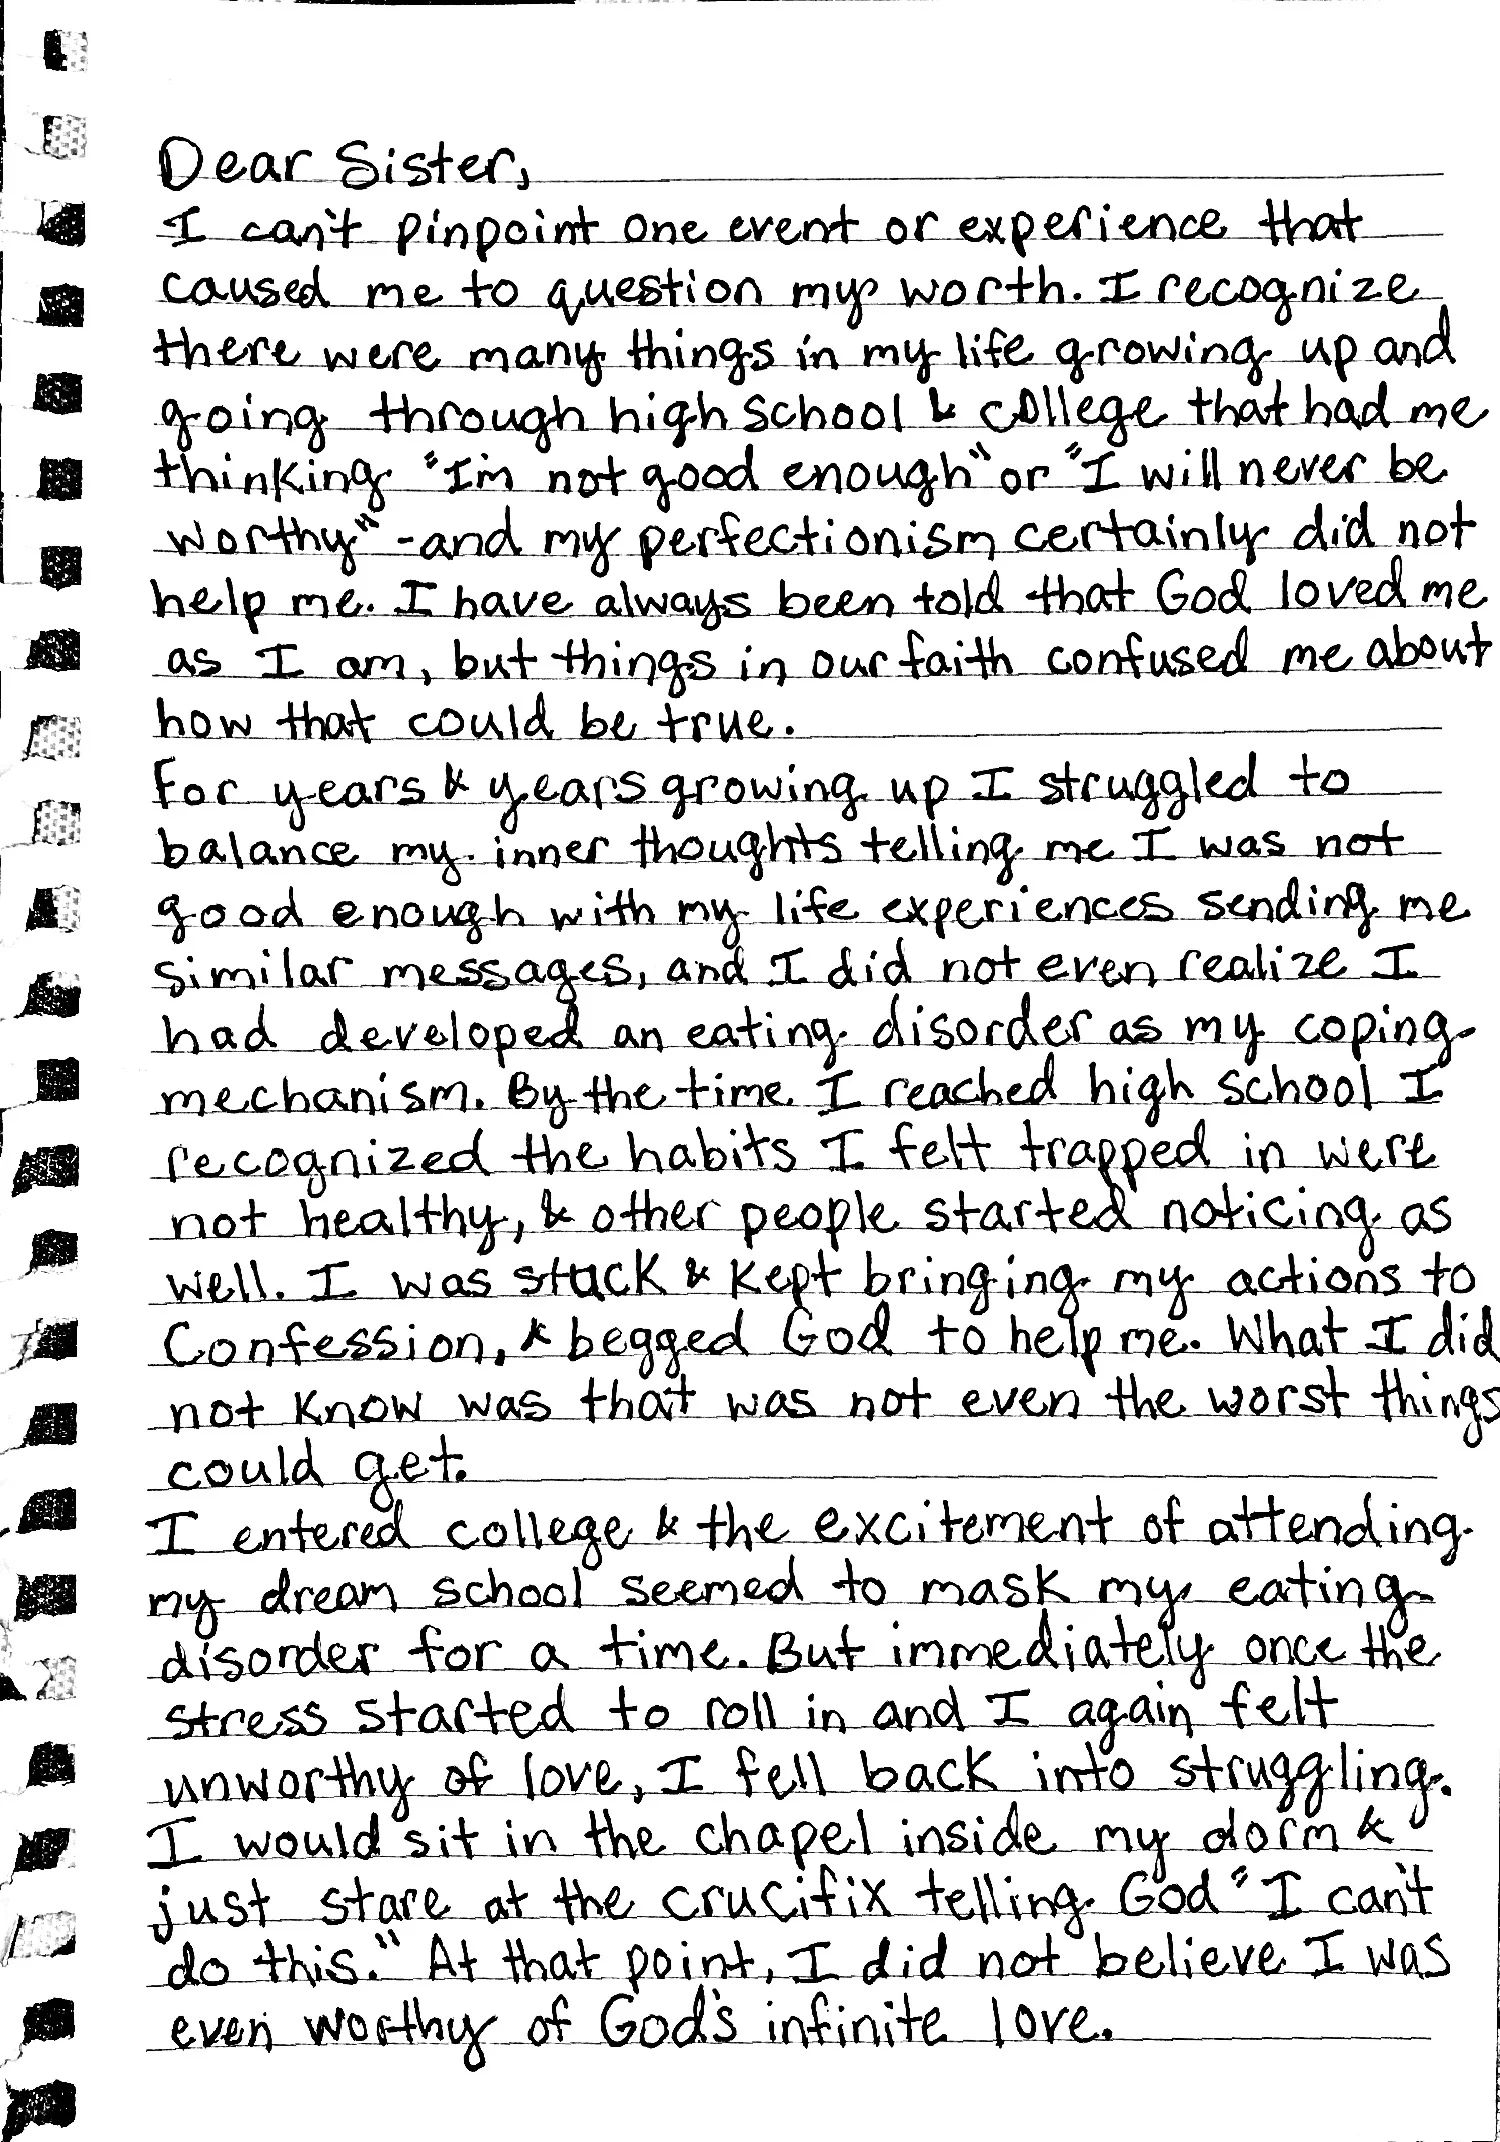 Dear Sister,
I can't pinpoint one event or experience that
caused me to question my worth. I recognize
there were many things in my life growing up and
going through high school & college that had me
thinking "I'm not good enough" or "I will never be
worthy" - and my perfectionism certainly did not
help me. I have always been told that God loved me
as I am, but things in our faith confused me about
how that could be true.
For years & years growing up I struggled to
balance my inner thoughts telling me I was not
good enough with my life experiences sending me
similar messages, and I did not even realize I
had developed an eating disorder as my coping
mechanism. By the time I reached high school I
recognized the habits I felt trapped in were
not healthy, & other people started noticing as
well. I was stuck & kept bringing my actions to
Confession, & begged God to help me. What I did
not know was that was not even the worst things
could get.
I entered college & the excitement of attending
my dream school seemed to mask my eating
disorder for a time. But immediately once the
stress started to roll in and I again felt
unworthy of love, I fell back into struggling.
I would sit in the chapel inside my dorm &
just stare at the crucifix telling God "I can't
do this." At that point, I did not believe I was
even worthy of God's infinite love.